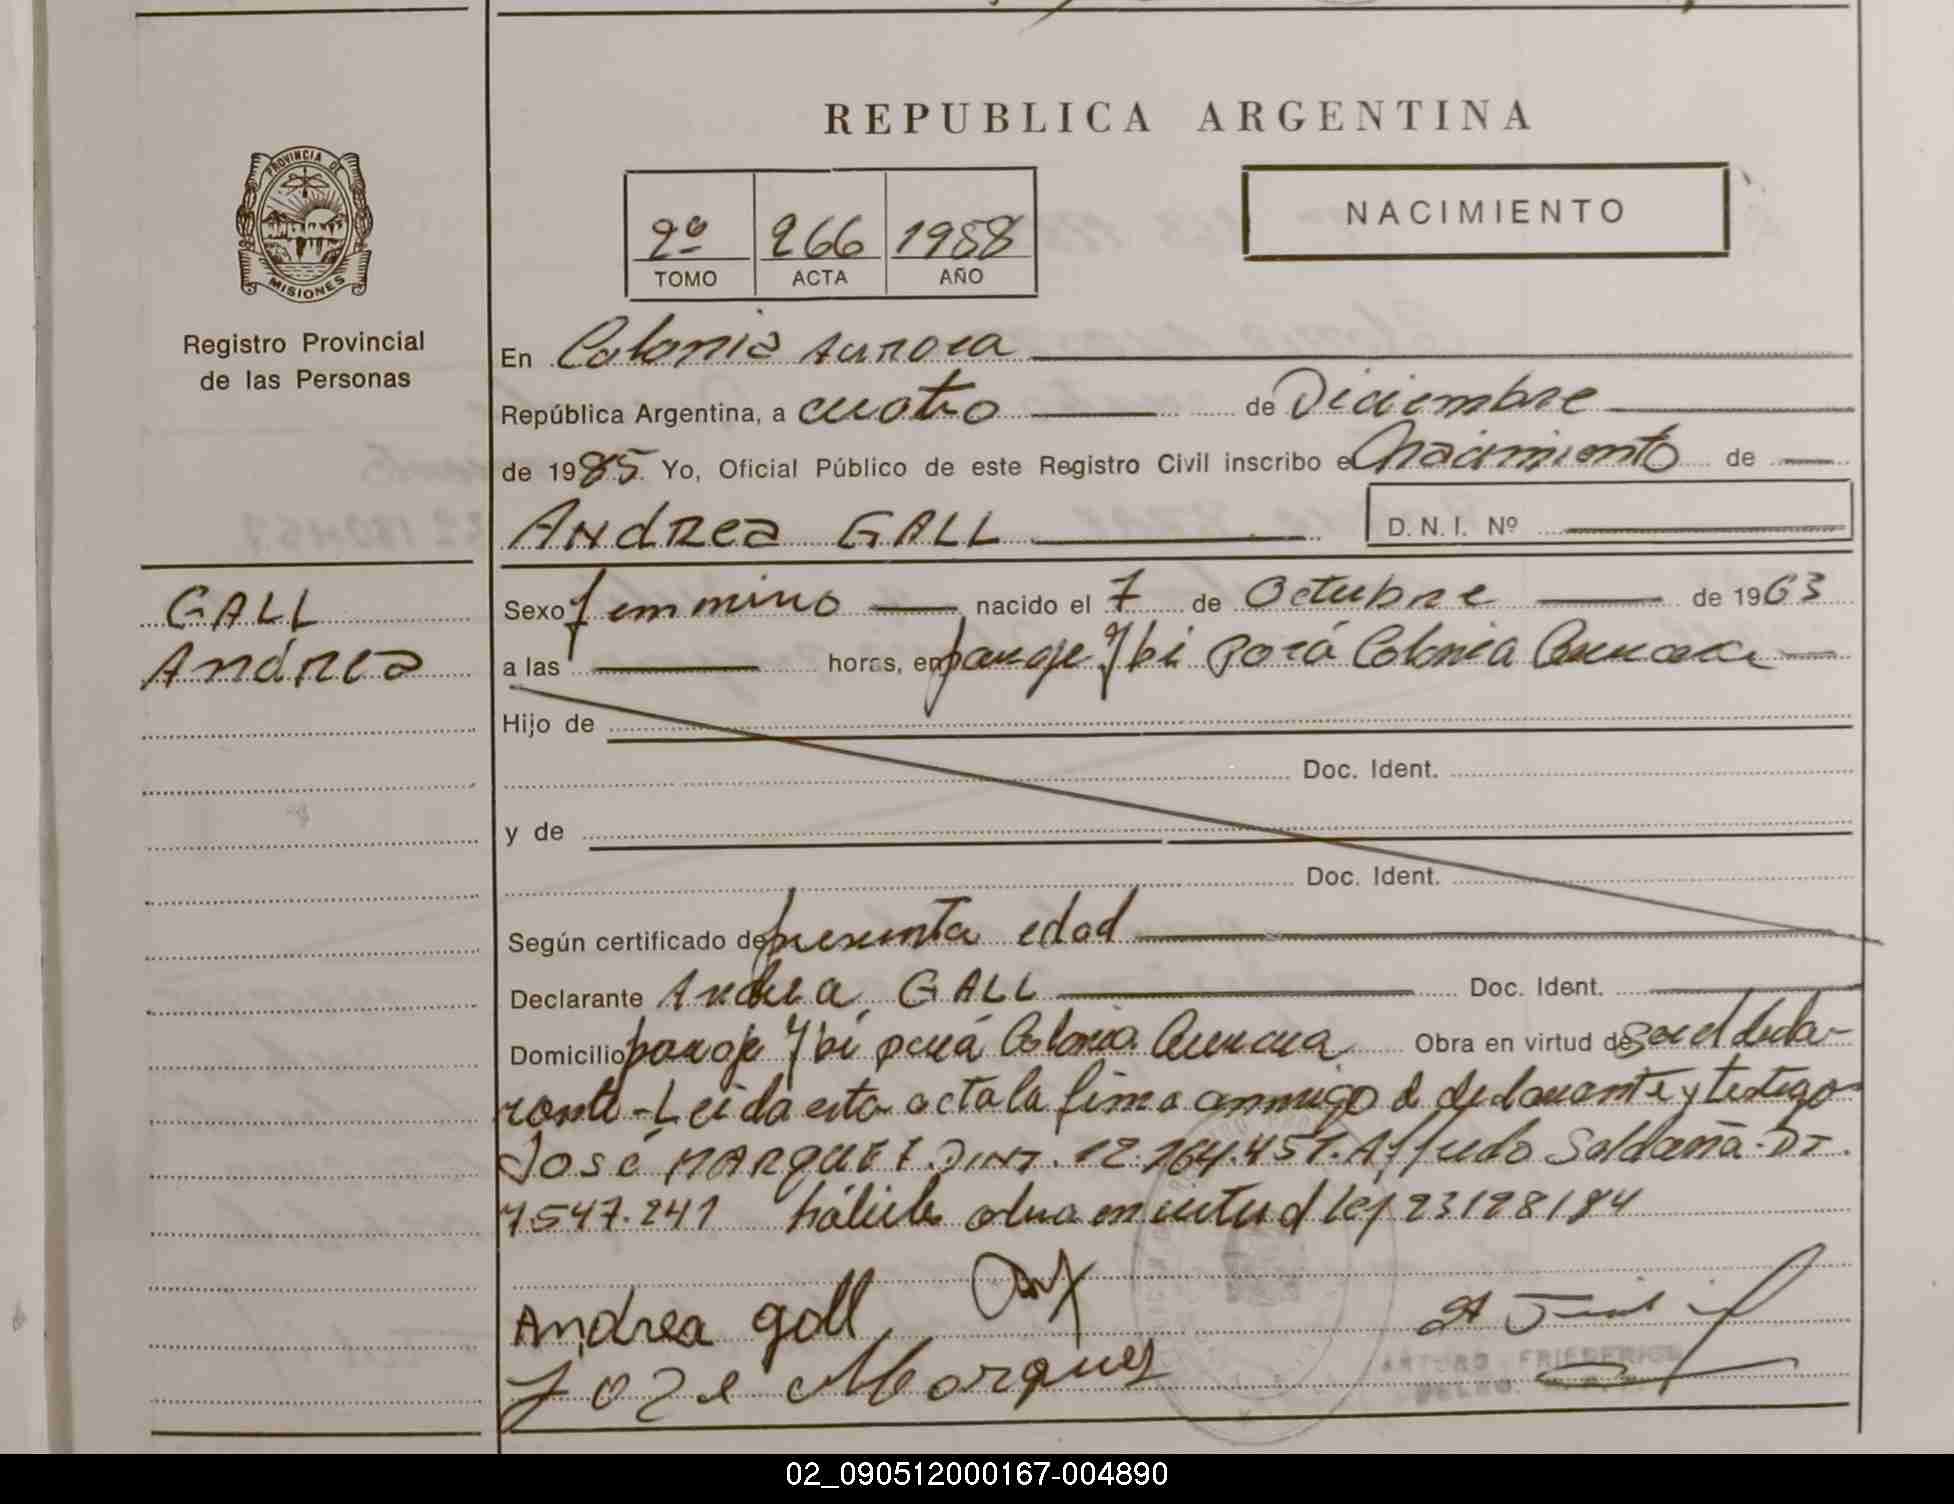 REPUBLICA ARGENTINA
PROVINCIA DE
MISIONES
Registro Provincial
de las Personas
2º 266 1988
TOMO ACTA AÑO
NACIMIENTO
En Colonia Aurora
República Argentina, a cuatro de Diciembre
de 1985 Yo, Oficial Público de este Registro Civil inscribo el Nacimiento de
ANdRea GALL D. N. I. Nº
GALL
ANdRea
Sexo femmino nacido el 7 de Octubre de 1963
a las horas, en paraje Ybi porá Colonia Aurora
Hijo de
Doc. Ident.
y de
Doc. Ident.
Según certificado de presunta edad
Declarante Andrea GALL Doc. Ident.
Domicilio paraje Ybi porá Colonia Aurora Obra en virtud de ser el decla-
rante - Leida esta acta la firma conmigo el declarante y testigo
José MARQUEZ 12.764.457. Alfredo Saldaña
7547.241 hábiles obra en virtud ley 23128/84
Andrea gall
Joze Marquez
ARTURO FRIEDERICH
02_090512000167-004890